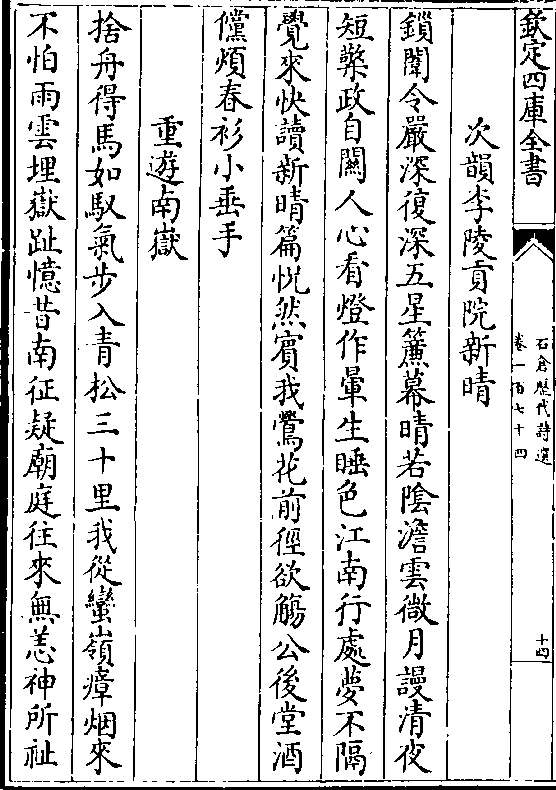 欽定四庫全書
石倉歷代詩選
卷一百七十四
十四
次韻李陵貢院新晴
鎖闈令嚴深復深五星簾幕晴若陰澹雲微月謾清夜
短檠政自關人心看燈作暈生睡色江南行處夢不隔
覺來快讀新晴篇恍然賓我鶯花前徑欲觴公後堂酒
儻煩春衫小垂手
重遊南嶽
捨舟得馬如馭氣步入青松三十里我從蠻嶺瘴烟來
不怕雨雲埋嶽趾憶昔南征疑廟庭往來無恙神所祉